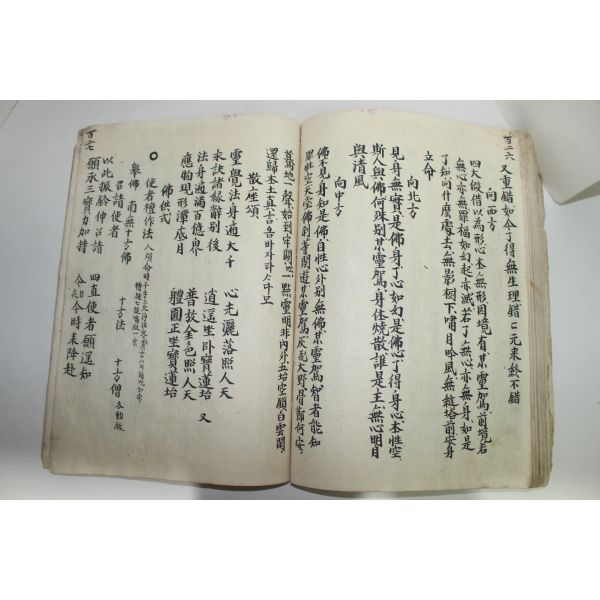 百二六
又重錯如今了得無生理錯々元來終不錯
向西方
四大假借以為形心本無形因境有某靈駕前境若
無心亦無罪福如幻起亦滅若了無心亦無身如是
了知向什麽處去無影樹下嘯月吟風無縫塔前安身
立命
向北方
見身無實是佛身了心如幻是佛心了得身心本性空
斯人與佛何殊別某靈駕身任燒散誰是主無心明月
與清風
向中方
佛不見身知是佛自性心外別無佛某靈駕智者能知
罪性空
驀地一聲始到牢關
點靈明非內外五坮空鎖白雲閒
還歸本土真言옴바자나사다모
散座頌
靈覺法身遍大千
心光灑落照人天
未訣諸緣辭別後
逍遥坐卧寶蓮坮 又
法身遍滿百億界
普放金色照人天
應物現形潭底月
體圓正坐寶蓮坮
佛供式
使者檀作法
舉佛 南無十方佛 十方法 十方僧
召請使者
以此振鈴伸召請
四直使者願遥知
願承三寶力加持
今日今時來降赴
百二七